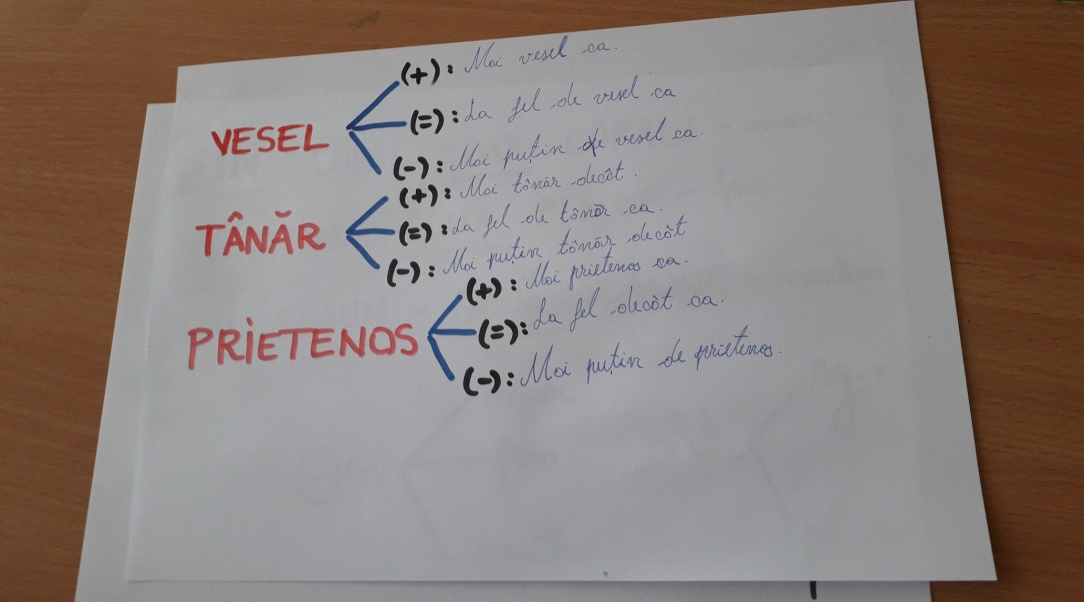 (+): Mai vesel ca.
VESEL (=): La fel de vesel ca
(-): Mai puțin de vesel ca.
(+): Mai tânăr decât.
TÂNĂR (=): La fel de tânăr ca.
(-): Mai puțin tânăr decât
(+): Mai prietenos ca.
PRIETENOS (=): La fel decât ca.
(-): Mai puțin de prietenos.